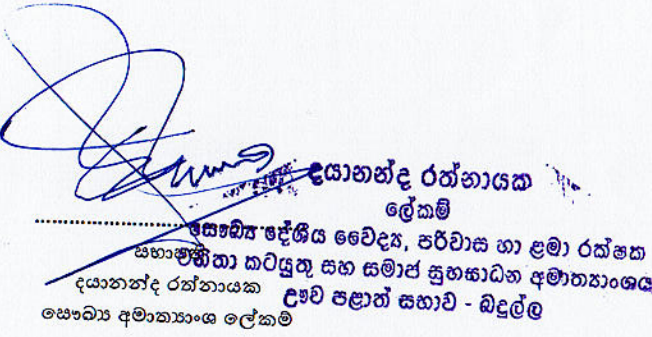 දයානන්ද රත්නායක
ලේකම්
සෞඛ්‍ය දේශීය වෛද්‍ය, පරිවාස හා ළමා රක්ෂක
වනිතා කටයුතු සහ සමාජ සුභසාධන අමාත්‍යාංශය
ඌව පළාත් සභාව - බදුල්ල
සභාපති
දයානන්ද රත්නායක
සෞඛ්‍ය අමාත්‍යාංශ ලේකම්